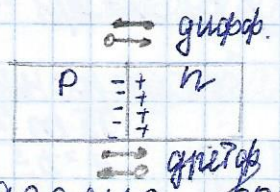 дифф.
P - + n
- +
- +
- +
дрейф